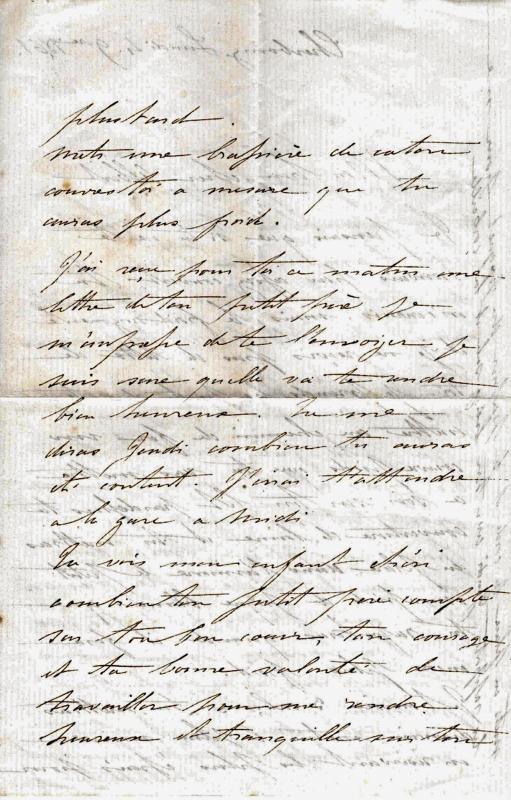 plustard.
mets une brassière de coton
couvres toi a mesure que tu
auras plus froid.
J'ai reçu pour toi ce matin une
lettre de ton petit père je
m'empresse de te l'envoijer je
suis sure quelle va te rendre
bien heureux. Tu me
diras Jeudi combien tu auras
été content. J'irai t'attendre
a la gare a midi
Tu vois mon enfant chéri
combien ton petit père compte
sur ton bon cœur, ton courage
et ta bonne volonté de
travailler pour me rendre
heureux et tranquille sur ton